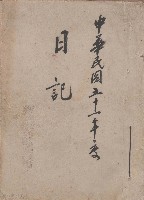 中華民國五十一年度
日記